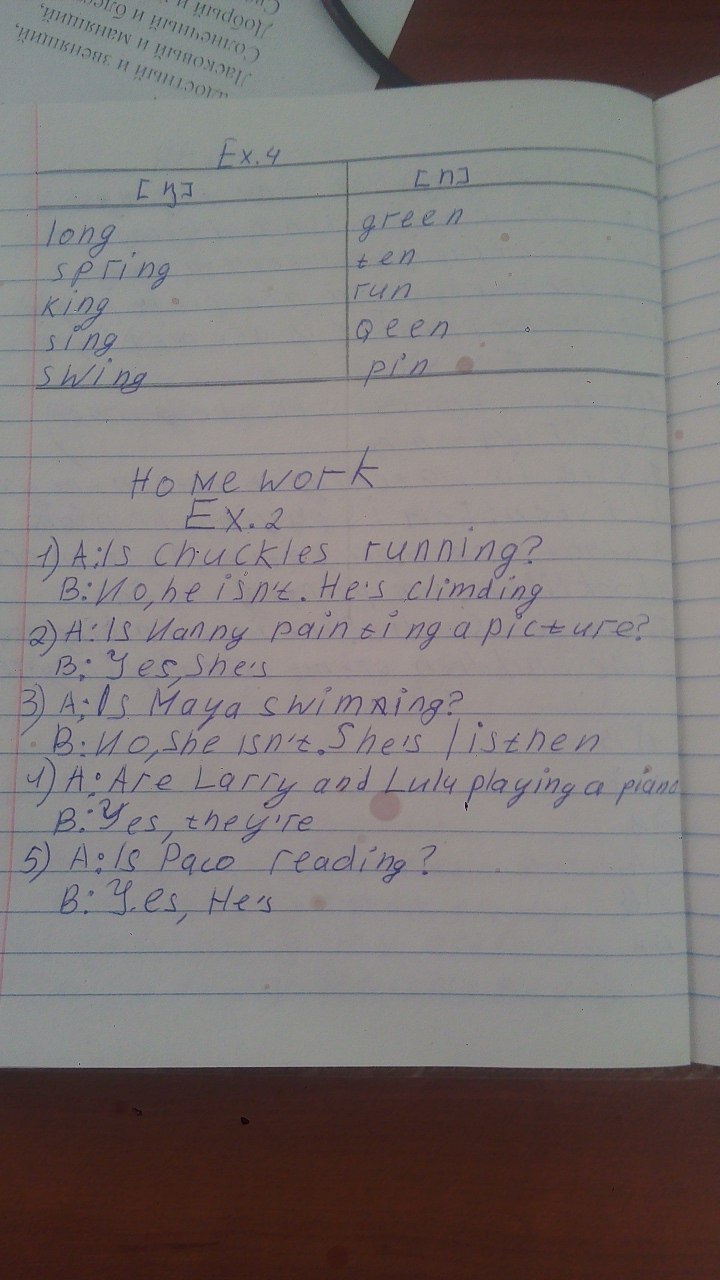 Добрый и
Солнечный и блес
Ласковый и манящий,
адостный и звенящий,
Ex.4
[ŋ] [n]
long green
spring ten
king run
sing Qeen
swing pin
Home work
Ex.2
1) A: Is Chuckles running?
B: No, he isn't. He's climding
2) A: Is Nanny painting a picture?
B: Yes, she's
3) A: Is Maya swimming?
B: No, she isn't. She's listhen
4) A: Are Larry and Lulu playing a piano
B: Yes, they're
5) A: Is Paco reading?
B: Yes, He's